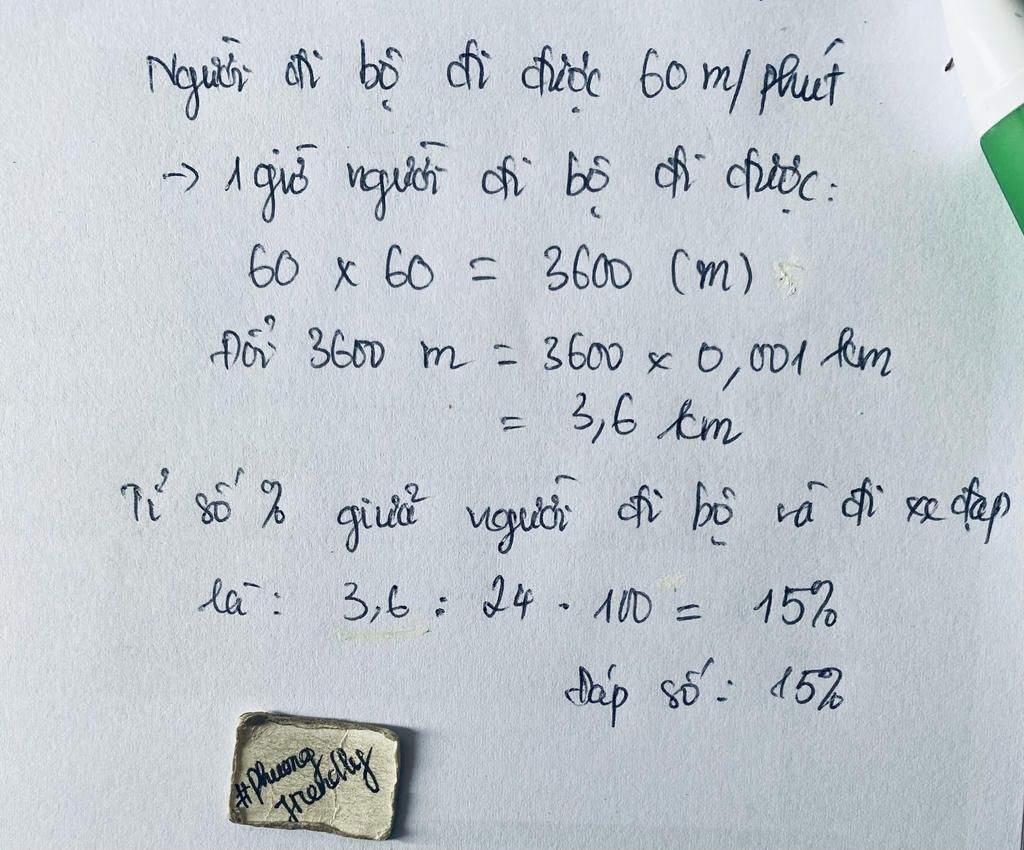 Người đi bộ đi được 60 m/phút
→ 1 giờ người đi bộ đi được:
60 x 60 = 3600 (m)
Đổi 3600 m = 3600 x 0,001 km
= 3,6 km
Tỉ số % giữa người đi bộ và đi xe đạp
là: 3,6 : 24 . 100 = 15%
Đáp số: 15%
#phuong
friendly